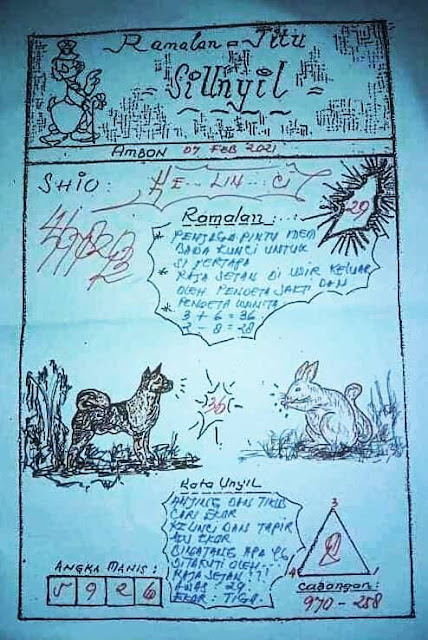 Ramalan = Jitu
SiUnyil
AMBON 07 FEB 2021
SHIO : KE .. LIN .. CI
29
Ramalan :
* PENJAGA PINTU MEM
BAWA KUNCI UNTUK
SI PERTAPA
* RAJA SETAN DI USIR KELUAR
OLEH PENDETA SAKTI DAN
PENDETA WANITA
3 + 6 = 36
2 - 8 = 28
36
Kata Unyil
ANJING DAN TIKUS
CARI EKOR
KELINCI DAN TAPIR
ADU EKOR
BINATANG APA YG
DITAKUTI OLEH
RAJA SETAN ??!
AWAS = 29
EKOR : TIGA
ANGKA MANIS :
5 9 2 6
3
2
4
1
CABANGAN :
970 - 258